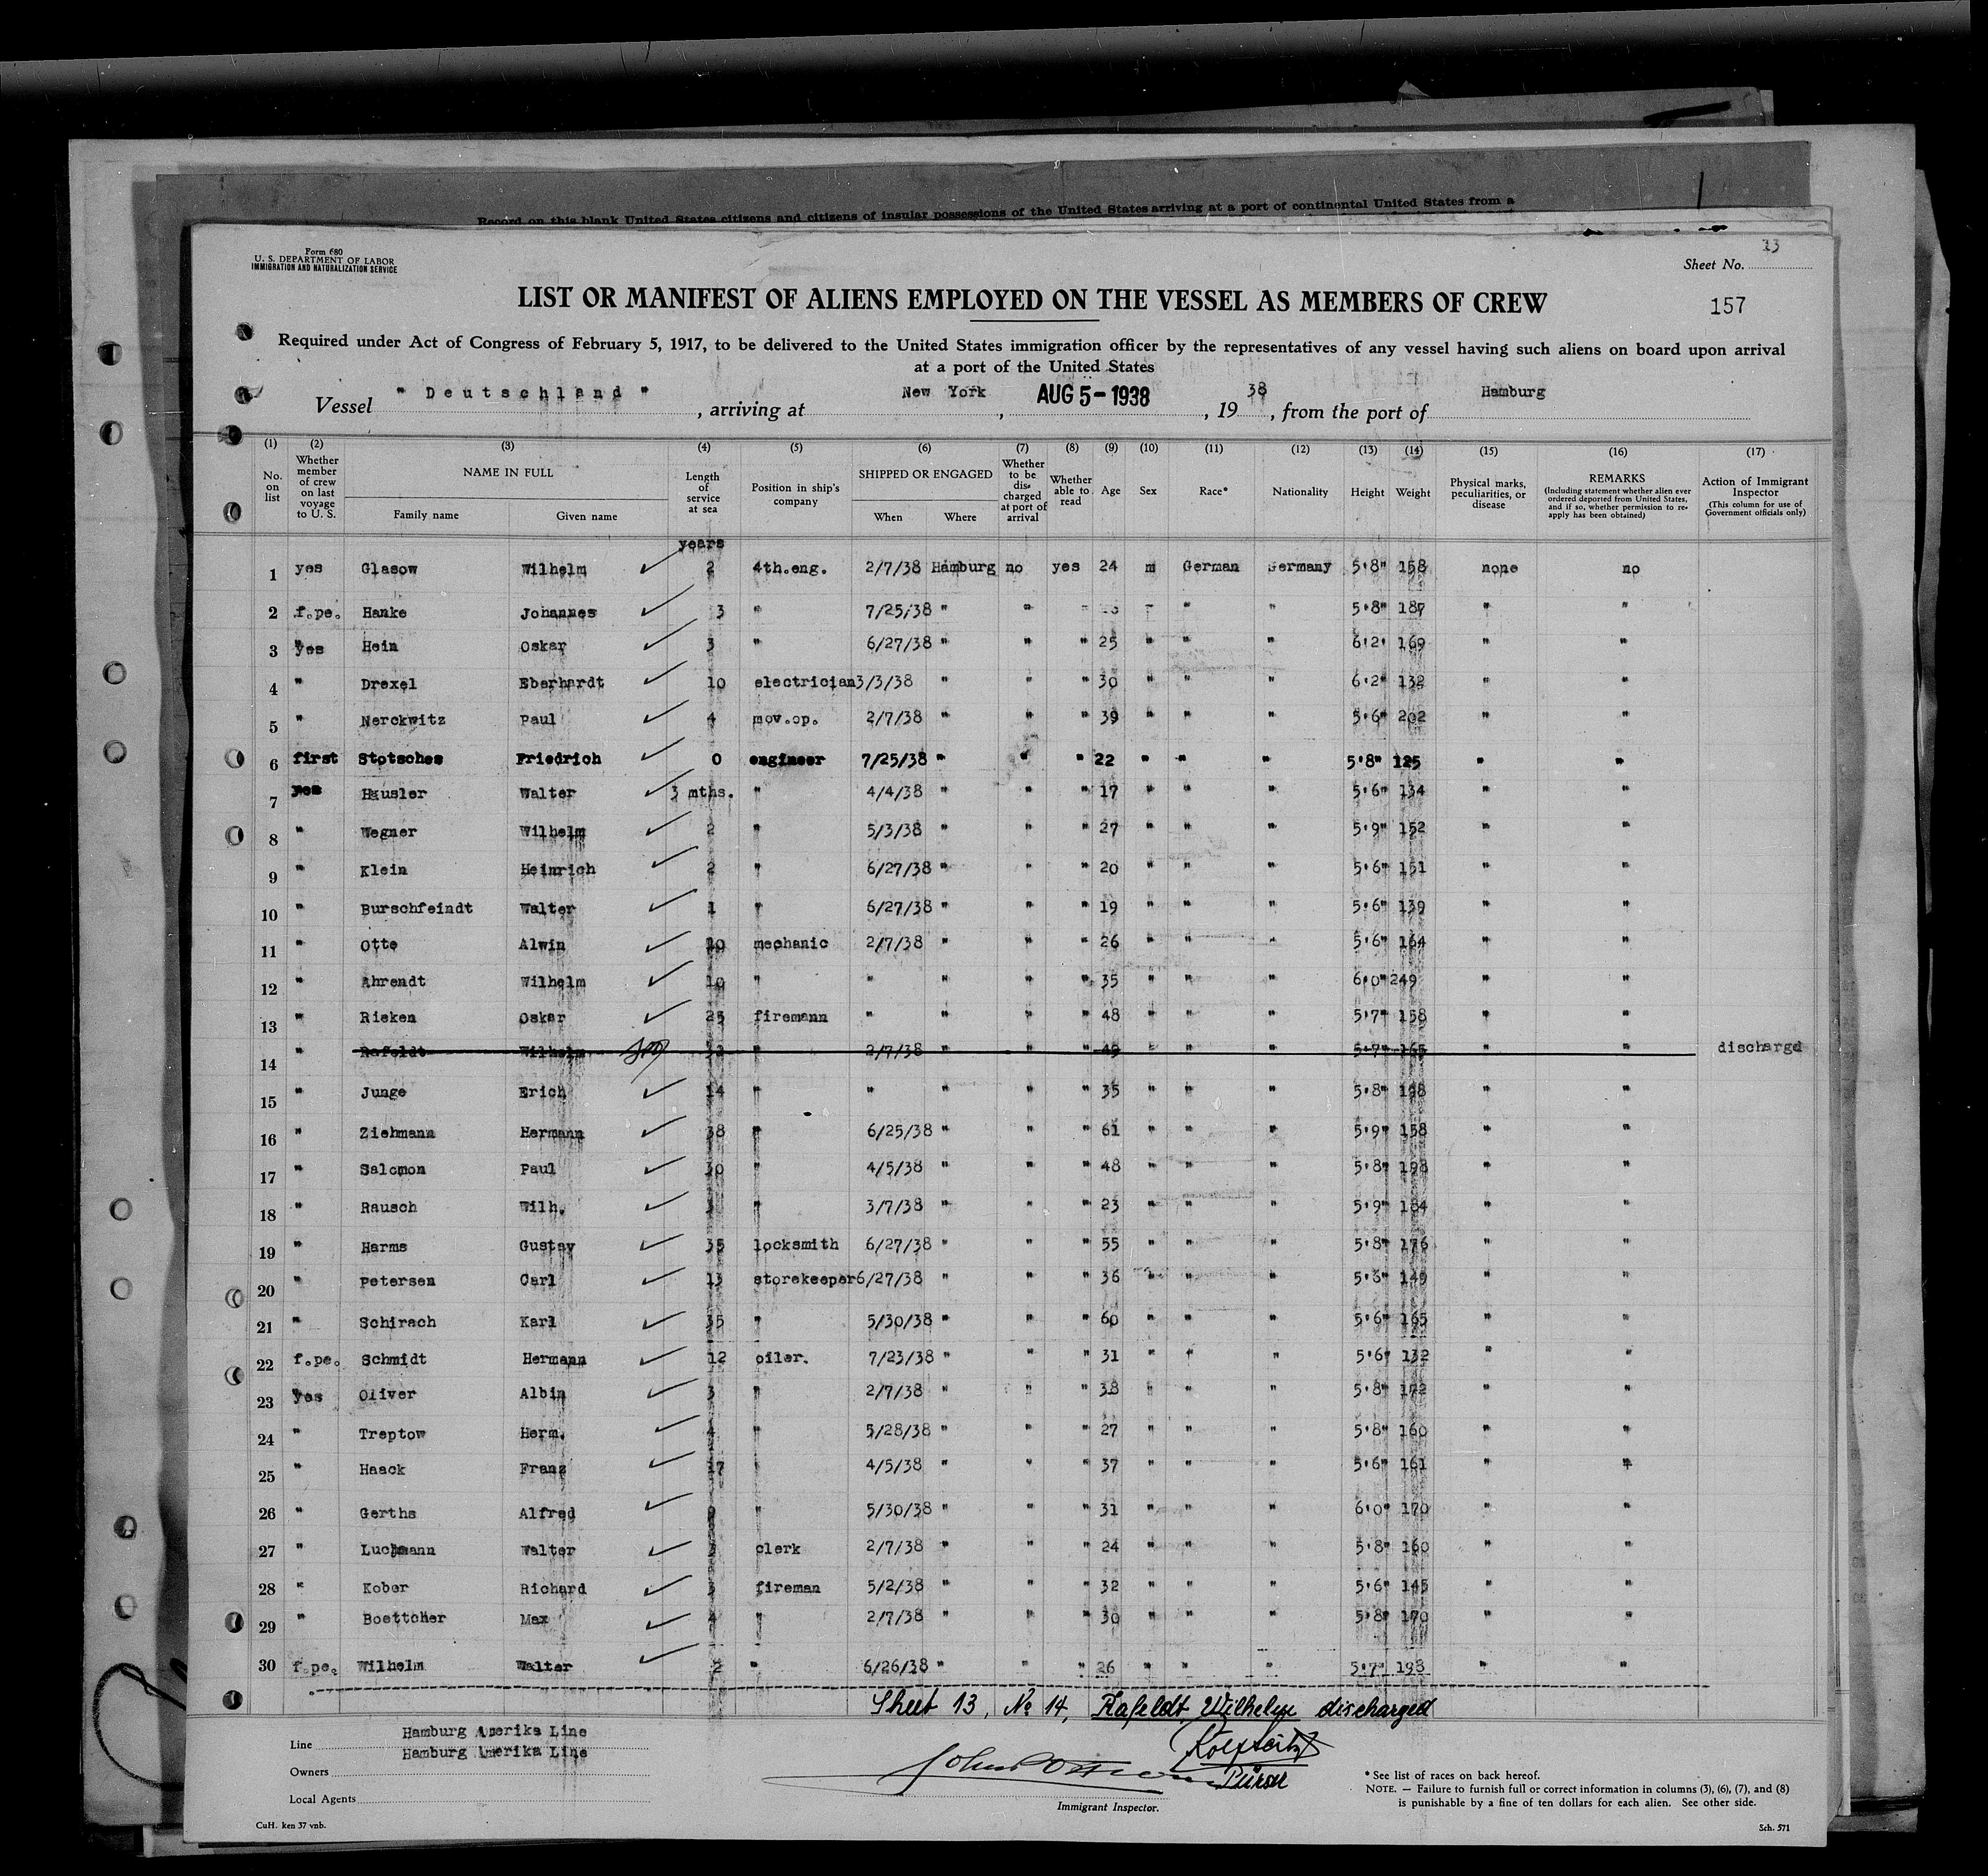 Record on this blank United States citizens and citizens of insular possessions of the United States arriving at a port of continental United States from a
Form 680
U. S. DEPARTMENT OF LABOR
IMMIGRATION AND NATURALIZATION SERVICE
Sheet No. 13
LIST OR MANIFEST OF ALIENS EMPLOYED ON THE VESSEL AS MEMBERS OF CREW
157
Required under Act of Congress of February 5, 1917, to be delivered to the United States immigration officer by the representatives of any vessel having such aliens on board upon arrival
at a port of the United States
Vessel " Deutschland ", arriving at New York, AUG 5-1938, 1938, from the port of Hamburg
(1) (2) (3) (4) (5) (6) (7) (8) (9) (10) (11) (12) (13) (14) (15) (16) (17)
No. on list
Whether member of crew on last voyage to U. S.
NAME IN FULL
Family name
Given name
Length of service at sea
Position in ship's company
SHIPPED OR ENGAGED
When
Where
Whether to be discharged at port of arrival
Whether able to read
Age
Sex
Race*
Nationality
Height
Weight
Physical marks, peculiarities, or disease
REMARKS
(Including statement whether alien ever ordered deported from United States, and if so, whether permission to reapply has been obtained)
Action of Immigrant Inspector
(This column for use of Government officials only)
years
1 yes Glasow Wilhelm 2 4th.eng. 2/7/38 Hamburg no yes 24 m German Germany 5'8" 158 none no
2 f.pe. Hanke Johannes 3 " 7/25/38 " " " " " " 5'8" 187 " "
3 yes Hein Oskar 3 " 6/27/38 " " " 25 " " " 6'2' 169 " "
4 " Drexel Eberhardt 10 electrician 3/3/38 " " " 30 " " " 6'2" 132 " "
5 " Nerckwitz Paul 4 mov.op. 2/7/38 " " " 39 " " " 5'6" 202 " "
6 first Stotsches Friedrich 0 engineer 7/25/38 " " " 22 " " " 5'8" 125 " "
7 yes Häusler Walter 3 mths. " 4/4/38 " " " 17 " " " 5'6" 134 " "
8 " Wegner Wilhelm 2 " 5/3/38 " " " 27 " " " 5'9" 152 " "
9 " Klein Heinrich 2 " 6/27/38 " " " 20 " " " 5'6" 151 " "
10 " Burschfeindt Walter 1 " 6/27/38 " " " 19 " " " 5'6" 139 " "
11 " Otte Alwin 10 mechanic 2/7/38 " " " 26 " " " 5'6" 164 " "
12 " Ahrendt Wilhelm 10 " " " " " 35 " " " 6'0" 249 " "
13 " Rieken Oskar 25 firemann " " " " 48 " " " 5'7" 158 " "
14 " Rafeldt Wilhelm " 2/7/38 " " " 49 " " " 5'7" 165 " " dischargd
15 " Junge Erich 14 " " " " " 35 " " " 5'8" 198 " "
16 " Ziehmann Hermann 38 " 6/25/38 " " " 61 " " " 5'9" 158 " "
17 " Salomon Paul 30 " 4/5/38 " " " 48 " " " 5'8" 198 " "
18 " Rausch Wilh. " 3/7/38 " " " 23 " " " 5'9" 184 " "
19 " Harms Gustav 35 locksmith 6/27/38 " " " 55 " " " 5'8" 176 " "
20 " Petersen Carl 13 storekeeper 6/27/38 " " " 36 " " " 149 " "
21 " Schirach Karl 35 " 5/30/38 " " " 60 " " " 5'6" 165 " "
22 f.pe. Schmidt Hermann 12 oiler. 7/23/38 " " " 31 " " " 5'6" 132 " "
23 yes Oliver Albin 3 " 2/7/38 " " " 38 " " " 5'8" 172 " "
24 " Treptow Herm. " 5/28/38 " " " 27 " " " 5'8" 160 " "
25 " Haack Franz 17 " 4/5/38 " " " 37 " " " 5'6" 161 " "
26 " Gerths Alfred " 5/30/38 " " " 31 " " " 6'0" 170 " "
27 " Walter clerk 2/7/38 " " " 24 " " " 5'8" 160 " "
28 " Kober Richard 3 fireman 5/2/38 " " " 32 " " " 5'6" 145 " "
29 " Boettcher Max 4 " 2/7/38 " " " 30 " " " 5'8" 170 " "
30 f.pe. Wilhelm Walter 2 " 6/26/38 " " " 26 " " " 5'7" 193 " "
Sheet 13, No 14, Rafeldt, Wilhelm discharged
Line Hamburg Amerika Line
Owners Hamburg Amerika Line
Local Agents
Immigrant Inspector.
Pürser
* See list of races on back hereof.
NOTE. — Failure to furnish full or correct information in columns (3), (6), (7), and (8)
is punishable by a fine of ten dollars for each alien. See other side.
CuH. ken 37 vnb.
Sch. 571